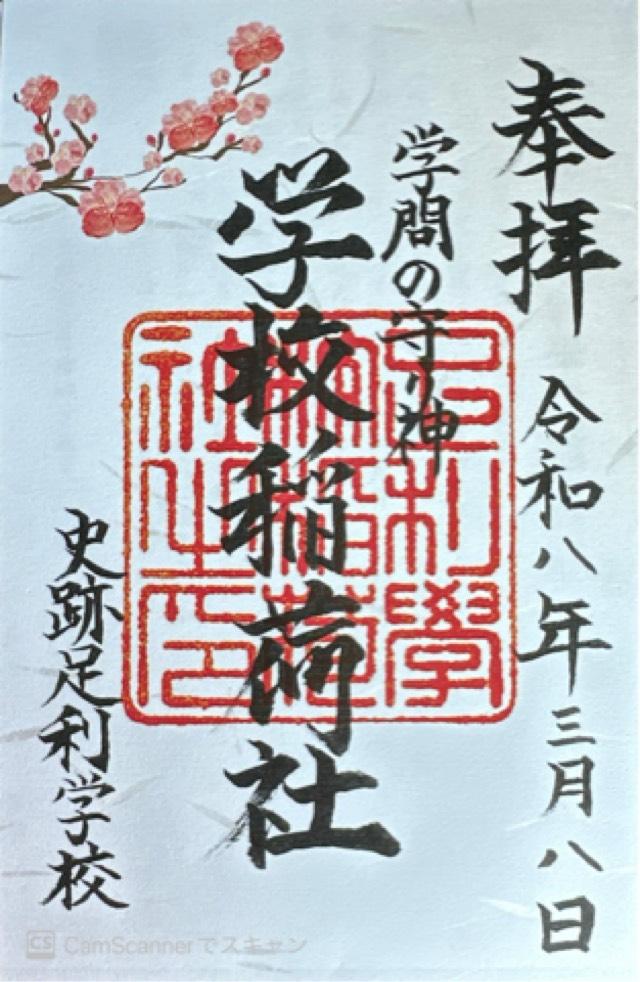 奉拝
令和八年三月八日
学問の守り神
学校稲荷社
史跡足利学校
足利學
校稲荷
社之印
CS CamScannerでスキャン